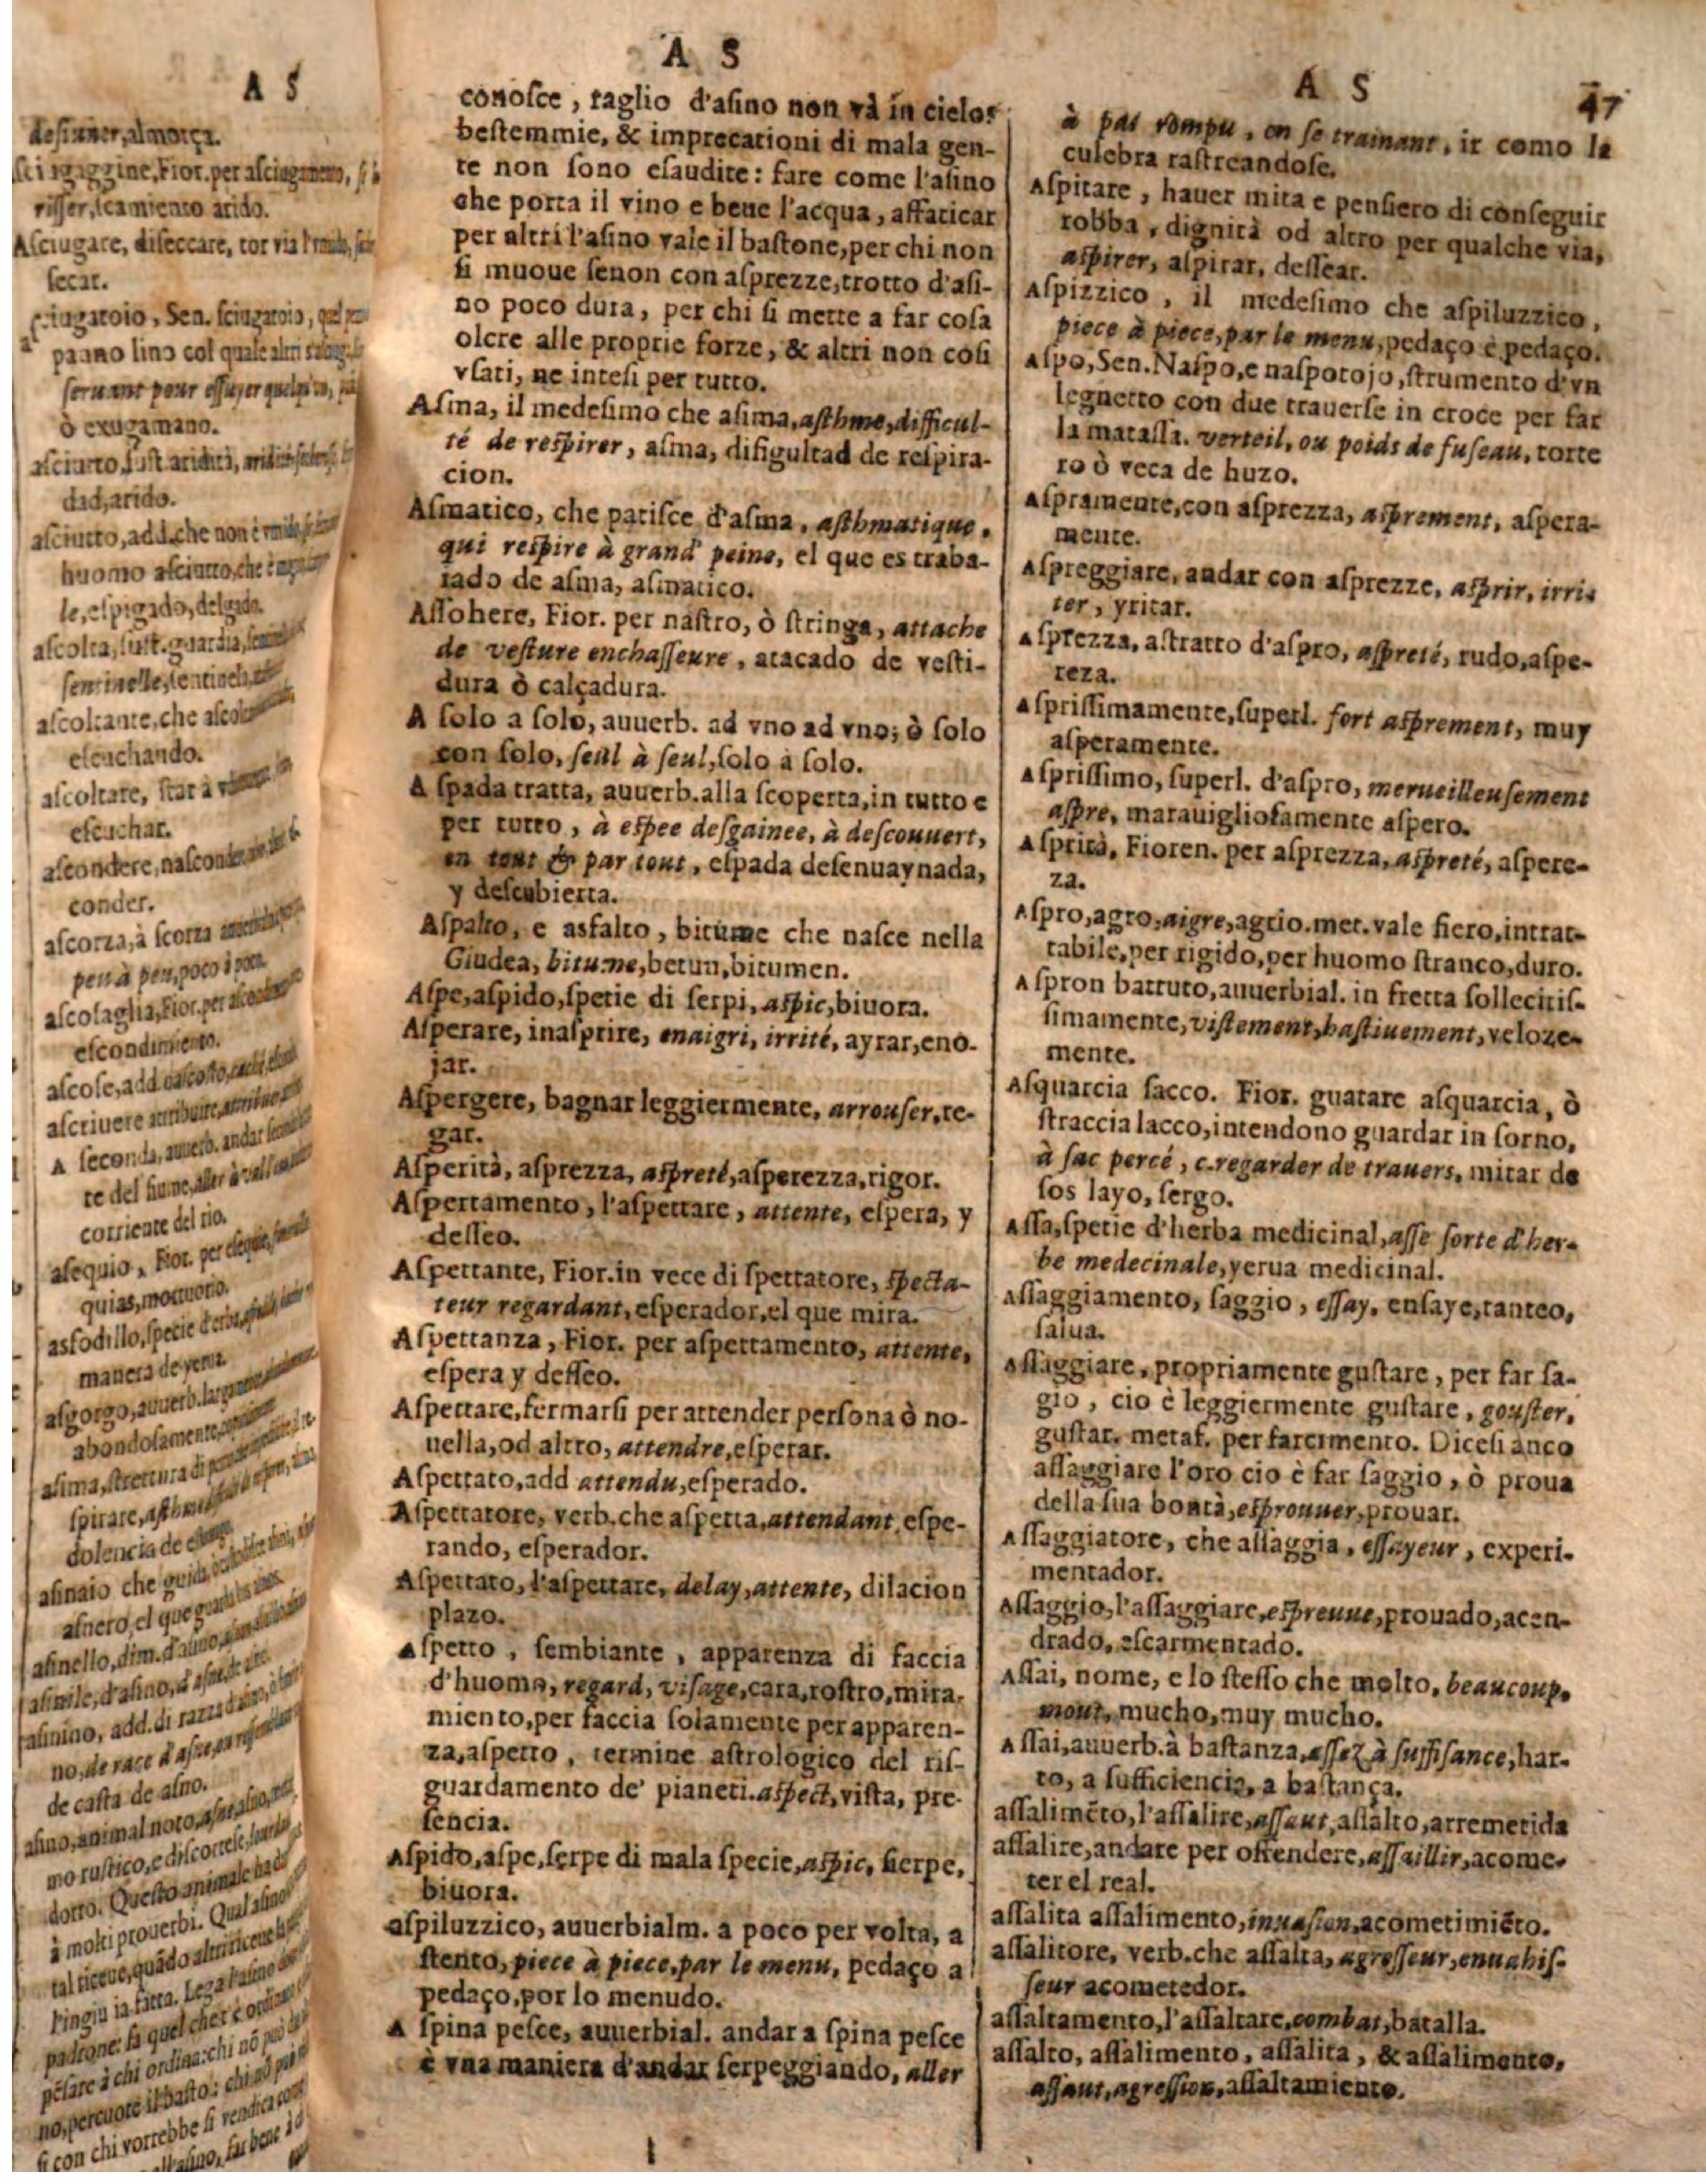 A S
desiuner, almorça.
riſſer, ſcamiento arido.
Aſciugare, diſeccare, tor via
ſecar.
panno lino col quale altri
ſeruant pour eſſuyer
ò exugamano.
dad, arido.
aſciutto, add. che non è
huomo aſciutto, che è
le, eſpigado, delgado.
aſcolta, ſuſt. guardia,
ſentinelle,
aſcoltante, che
eſcuchando.
aſcoltare, ſtar à
eſcuchar.
aſcondere,
conder.
aſcorza, à ſcorza
peu à peu, poco à poco.
aſcoſaglia, Fior. per
eſcondimiento.
aſcoſe, add. naſcoſto,
aſcriuere attribuire,
A ſeconda, auuerb. andar
te del fiume, aller à
corriente del rio.
aſequio, Fior. per
quias, mortuorio.
asfodillo, ſpecie d'erba,
manera de yerua.
aſgorgo, auuerb.
abondoſamente,
aſima, ſtrettura di
ſpirare,
dolencia de
aſinaio che guida
aſnero, el que guarda
aſinello, dim. d'aſino,
aſinile, d'aſino,
aſinino, add. di razza d'aſino,
no, de race d'aſne,
de caſta de aſno.
aſino, animal noto,
mo ruſtico, e diſcorteſe,
dotto. Queſto animale
à molti prouerbi. Qual aſino
tal riceue, quãdo altri riceue
padrone: fà quel che t'è
pẽſare à chi ordina: chi nõ può
no, percuote il baſto: chi nõ
ſi con chi vorrebbe ſi vendica
A S
conoſce, raglio d'aſino non và in cielo:
beſtemmie, & imprecationi di mala gen-
te non ſono eſaudite: fare come l'aſino
che porta il vino e beue l'acqua, affaticar
per altri l'aſino vale il baſtone, per chi non
ſi muoue ſenon con aſprezze, trotto d'aſi-
no poco dura, per chi ſi mette a far coſa
oltre alle proprie forze, & altri non coſi
vſati, ne inteſi per tutto.
Aſma, il medeſimo che aſima, aſthme, difficul-
té de reſpirer, aſma, difigultad de reſpira-
cion.
Aſmatico, che patiſce d'aſma, aſthmatique,
qui reſpire à grand' peine, el que es traba-
iado de aſma, aſmatico.
Aſſohere, Fior. per naſtro, ò ſtringa, attache
de veſture enchaſſeure, atacado de veſti-
dura ò calçadura.
A ſolo a ſolo, auuerb. ad vno ad vno; ò ſolo
con ſolo, ſeul à ſeul, ſolo à ſolo.
A ſpada tratta, auuerb. alla ſcoperta, in tutto e
per tutto, à eſpee deſgainee, à deſcouuert,
en tout & par tout, eſpada deſenuaynada,
y deſcubierta.
Aſpalto, e asfalto, bitume che naſce nella
Giudea, bitume, betun, bitumen.
Aſpe, aſpido, ſpetie di ſerpi, aſpic, biuora.
Aſperare, inaſprire, enaigri, irrité, ayrar, eno-
jar.
Aſpergere, bagnar leggiermente, arrouſer, re-
gar.
Aſperità, aſprezza, aſpreté, aſperezza, rigor.
Aſpertamento, l'aſpettare, attente, eſpera, y
deſſeo.
Aſpettante, Fior. in vece di ſpettatore, ſpecta-
teur regardant, eſperador, el que mira.
Aſpettanza, Fior. per aſpettamento, attente,
eſpera y deſſeo.
Aſpettare, fermarſi per attender perſona ò no-
uella, od altro, attendre, eſperar.
Aſpettato, add attendu, eſperado.
Aſpettatore, verb. che aſpetta, attendant, eſpe-
rando, eſperador.
Aſpettato, l'aſpettare, delay, attente, dilacion
plazo.
Aſpetto, ſembiante, apparenza di faccia
d'huomo, regard, viſage, cara, roſtro, mira-
miento, per faccia ſolamente per apparen-
za, aſpetto, termine aſtrologico del riſ-
guardamento de' pianeti. aſpect, viſta, pre-
ſencia.
Aſpido, aſpe, ſerpe di mala ſpecie, aſpic, ſierpe,
biuora.
aſpiluzzico, auuerbialm. a poco per volta, a
ſtento, piece à piece, par le menu, pedaço a
pedaço, por lo menudo.
A ſpina peſce, auuerbial. andar a ſpina peſce
è vna maniera d'andar ſerpeggiando, aller
A S
47
à pas rompu, en ſe trainant, ir como la
culebra raſtreandoſe.
Aſpirare, hauer mira e penſiero di conſeguir
robba, dignità od altro per qualche via,
aſpirer, aſpirar, deſſear.
Aſpizzico, il medeſimo che aſpiluzzico,
piece à piece, par le menu, pedaço è pedaço.
Aſpo, Sen. Naſpo, e naſpotojo, ſtrumento d'vn
legnetto con due trauerſe in croce per far
la mataſſa. verteil, ou poids de fuſeau, torte
ro ò veca de huzo.
Aſpramente, con aſprezza, aſprement, aſpera-
mente.
Aſpreggiare, andar con aſprezze, aſprir, irri-
ter, yritar.
Aſprezza, aſtratto d'aſpro, aſpreté, rudo, aſpe-
reza.
Aſpriſſimamente, ſuperl. fort aſprement, muy
aſperamente.
Aſpriſſimo, ſuperl. d'aſpro, merueilleuſement
aſpre, marauiglioſamente aſpero.
Aſprità, Fioren. per aſprezza, aſpreté, aſpere-
za.
Aſpro, agro, aigre, agrio. met. vale fiero, intrat-
tabile, per rigido, per huomo ſtranco, duro.
A ſpron battuto, auuerbial. in fretta ſollecitiſ-
ſimamente, viſtement, haſtiuement, veloze-
mente.
Aſquarcia ſacco. Fior. guatare aſquarcia, ò
ſtraccia ſacco, intendono guardar in torno,
à ſac percé, c. regarder de trauers, mirar de
ſos layo, ſergo.
Aſſa, ſpetie d'herba medicinal, aſſe ſorte d'her-
be medecinale, yerua medicinal.
Aſſaggiamento, ſaggio, eſſay, enſaye, tanteo,
ſalua.
Aſſaggiare, propriamente guſtare, per far ſa-
gio, cio è leggiermente guſtare, gouſter,
guſtar. metaf. per farcimento. Diceſi anco
aſſaggiare l'oro cio è far ſaggio, ò proua
della ſua bontà, eſprouuer, prouar.
Aſſaggiatore, che aſſaggia, eſſayeur, experi-
mentador.
Aſſaggio, l'aſſaggiare, eſpreuue, prouado, acen-
drado, eſcarmentado.
Aſſai, nome, e lo ſteſſo che molto, beaucoup,
mout, mucho, muy mucho.
Aſſai, auuerb. à baſtanza, aſſez à ſuffiſance, har-
to, a ſufficiencia, a baſtança.
aſſalimẽto, l'aſſalire, aſſaut, aſſalto, arremetida
aſſalire, andare per offendere, aſſaillir, acome-
ter el real.
aſſalita aſſalimento, inuaſion, acometimiẽto.
aſſalitore, verb. che aſſalta, agreſſeur, enuahiſ-
ſeur acometedor.
aſſaltamento, l'aſſaltare, combat, batalla.
aſſalto, aſſalimento, aſſalita, & aſſalimento,
aſſaut, agreſſion, aſſaltamiento.